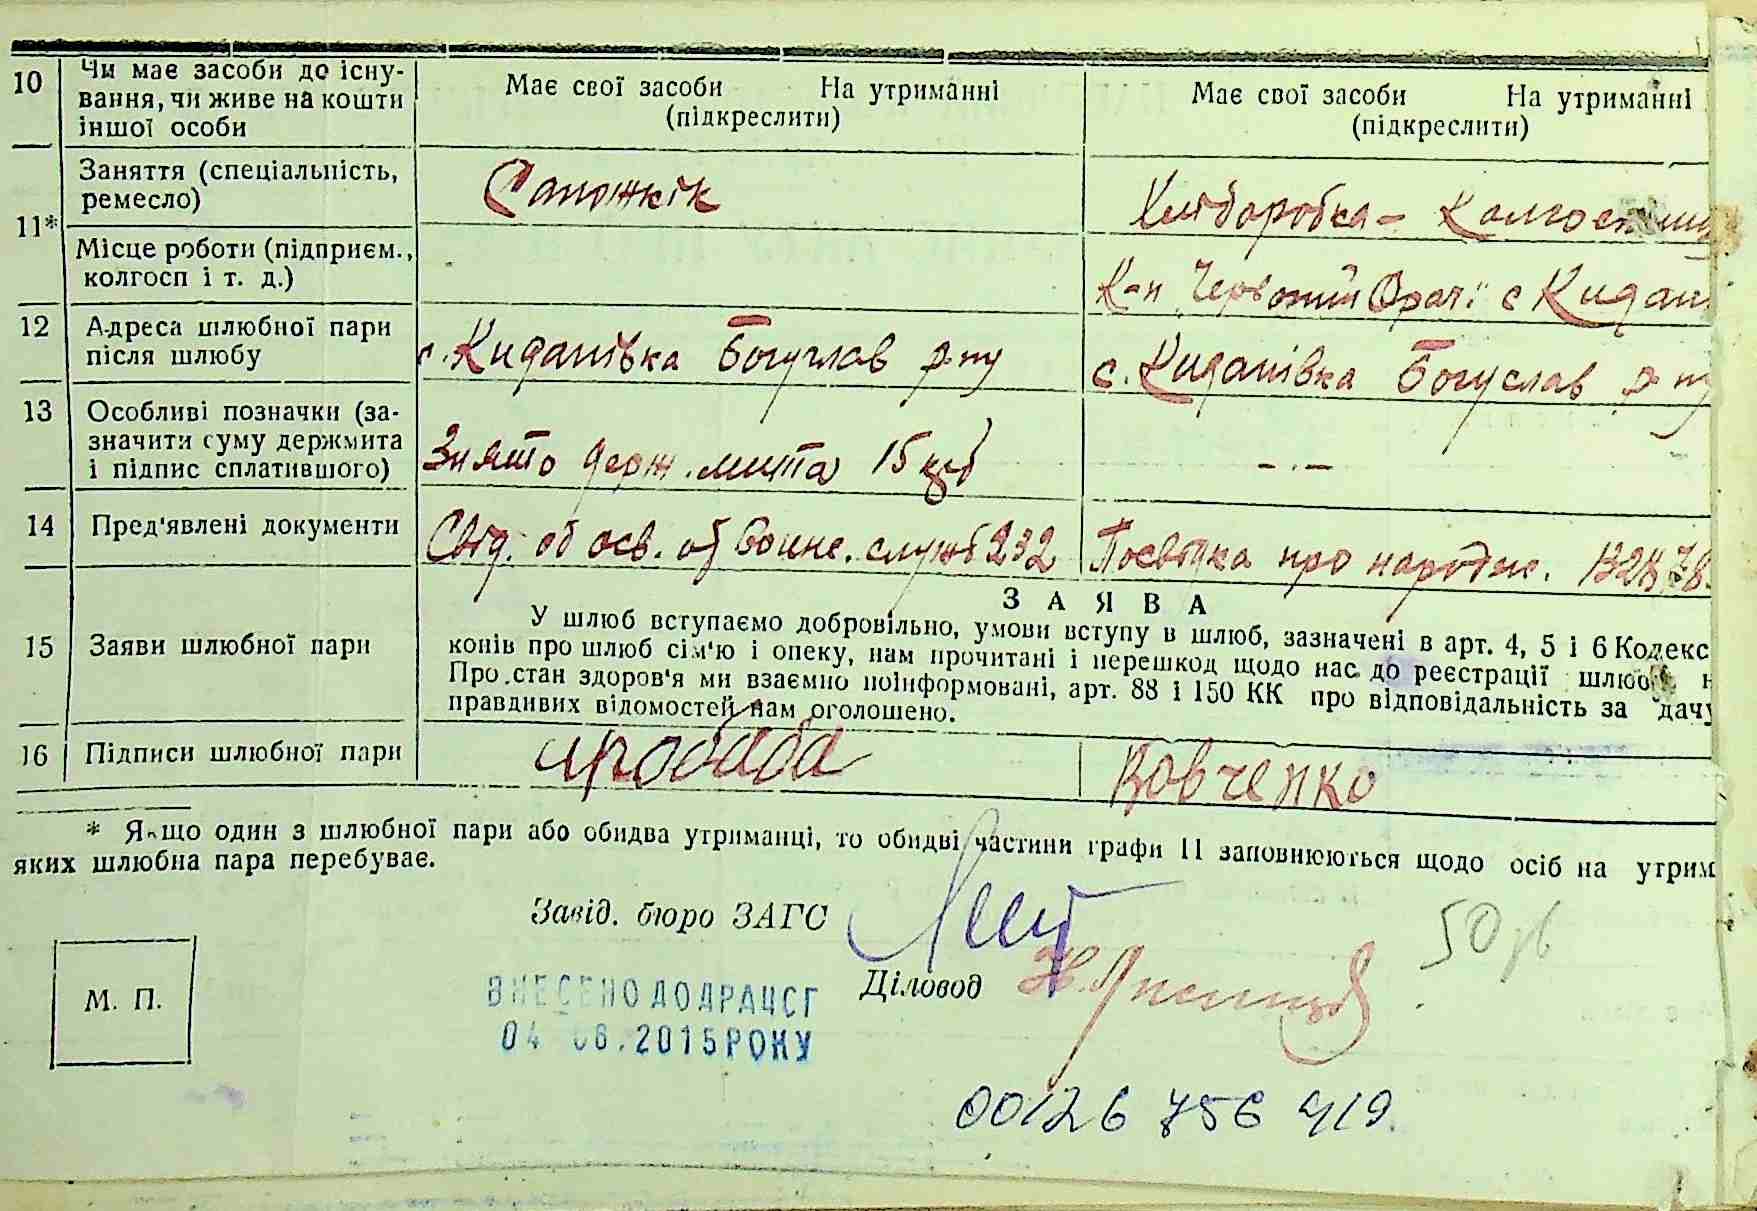 10 Чи має засоби до існу-
вання, чи живе на кошти
іншої особи
Має свої засоби На утриманні
(підкреслити)
Має свої засоби На утриманні
(підкреслити)
11*
Заняття (спеціальність,
ремесло)
Сапожнік
Хліборобка - Колгосп
Місце роботи (підприєм.,
колгосп і т. д.)
К-п Червоний с Кидан
12 Адреса шлюбної пари
після шлюбу
с. Киданівка Богуслав р-ну
с. Киданівка Богуслав р-ну
13 Особливі позначки (за-
значити суму держмита
і підпис сплатившого)
Знято держ. мита 15 крб
- . -
14 Пред'явлені документи
Свід. об осв. об воине. служб 232
Посвідка про народж.
15 Заяви шлюбної пари
ЗАЯВА
У шлюб вступаємо добровільно, умови вступу в шлюб, зазначені в арт. 4, 5 і 6 Кодекс
конів про шлюб сім'ю і опеку, нам прочитані і перешкод щодо нас до реєстрації шлюб
Про стан здоров'я ми взаємно поінформовані, арт. 88 і 150 КК про відповідальність за дачу
правдивих відомостей нам оголошено.
16 Підписи шлюбної пари
Вовченко
* Якщо один з шлюбної пари або обидва утриманці, то обидві частини графи 11 заповнюються щодо осіб на утрим
яких шлюбна пара перебуває.
Завід. бюро ЗАГС
50
М. П.
Діловод
ВНЕСЕНО ДО ДРАЦСГ
04 06.2015 РОКУ
00126 756 419.